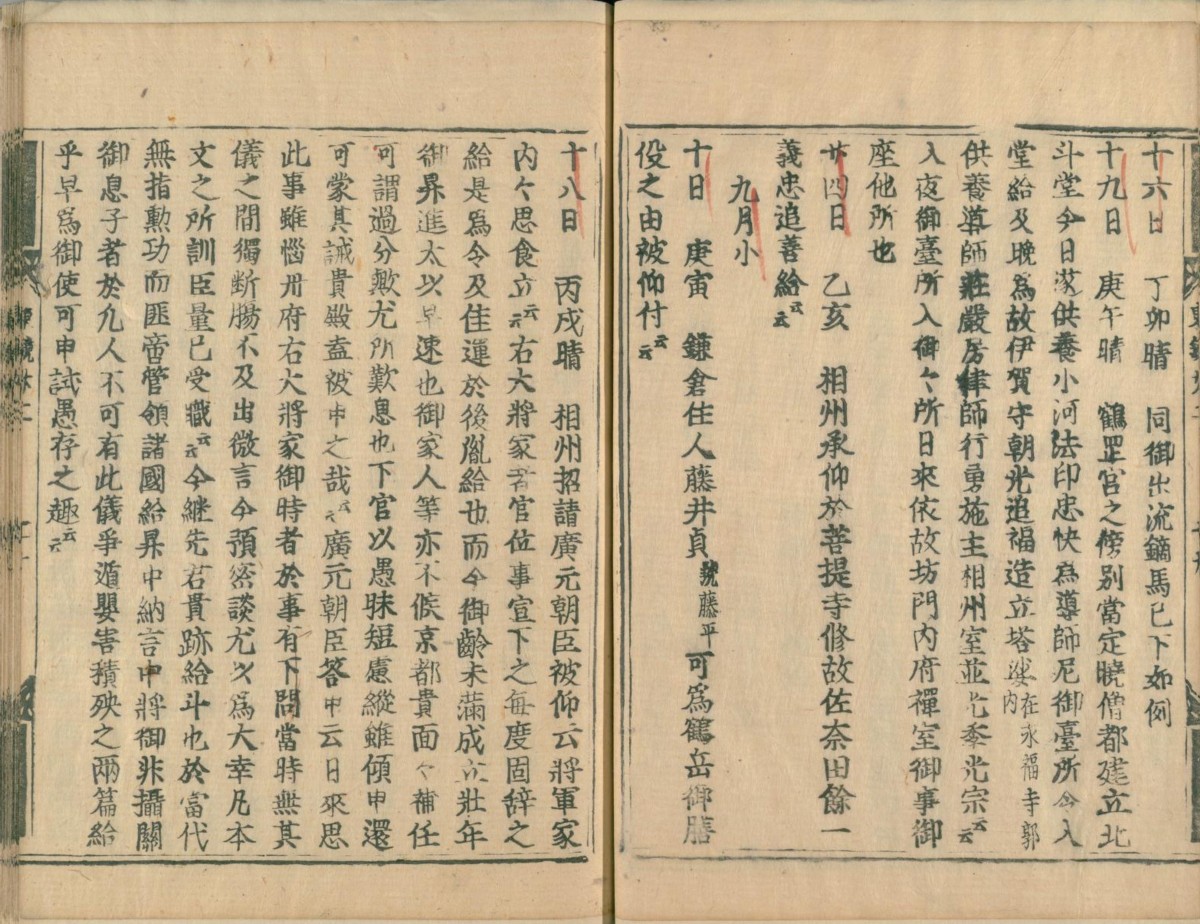 十六日　丁卯晴　同御出流鏑馬已下如例
十九日　庚午晴　鶴罡宮之傍別當定曉僧都建立北
斗堂今日遂供養小河法印忠快為導師尼御臺所令入
堂給及晩為故伊賀守朝光追福造立塔婆在永福寺郭内
供養導師莊嚴房律師行勇施主相州室並光季光宗云云
入夜御臺所入御々所日來依故坊門内府禪室御事御
座他所也
廿四日　乙亥　相州承仰於菩提寺修故佐奈田餘一
義忠追善給云云
九月小
十日　庚寅　鎌倉住人藤井貞號藤平可為鶴岳御膳
役之由被仰付云云
十八日　丙戌晴　相州招請廣元朝臣被仰云將軍家
内々思食立云云右大將家者官位事宣下之毎度固辞之
給是為令及佳運於後胤給也而今御齡未滿成立壯年
御昇進太以早速也御家人等亦不候京都貴面々補任
可謂過分歟尤所歎息也下官以愚昧短慮縱雖傾申還
可蒙其誡貴殿盍被申之哉云云廣元朝臣答申云日來思
此事雖惱丹府右大將家御時者於事有下問當時無其
儀之間獨断腸不及出微言今預密談尤以為大幸凡本
文之所訓臣量已受職云云今継先君貴跡給斗也於當代
無指勲功而匪啻管領諸國給昇中納言中將御非攝關
御息子者於凡人不可有此儀爭遁嬰害積殃之兩篇給
乎早為御使可申試愚存之趣云云